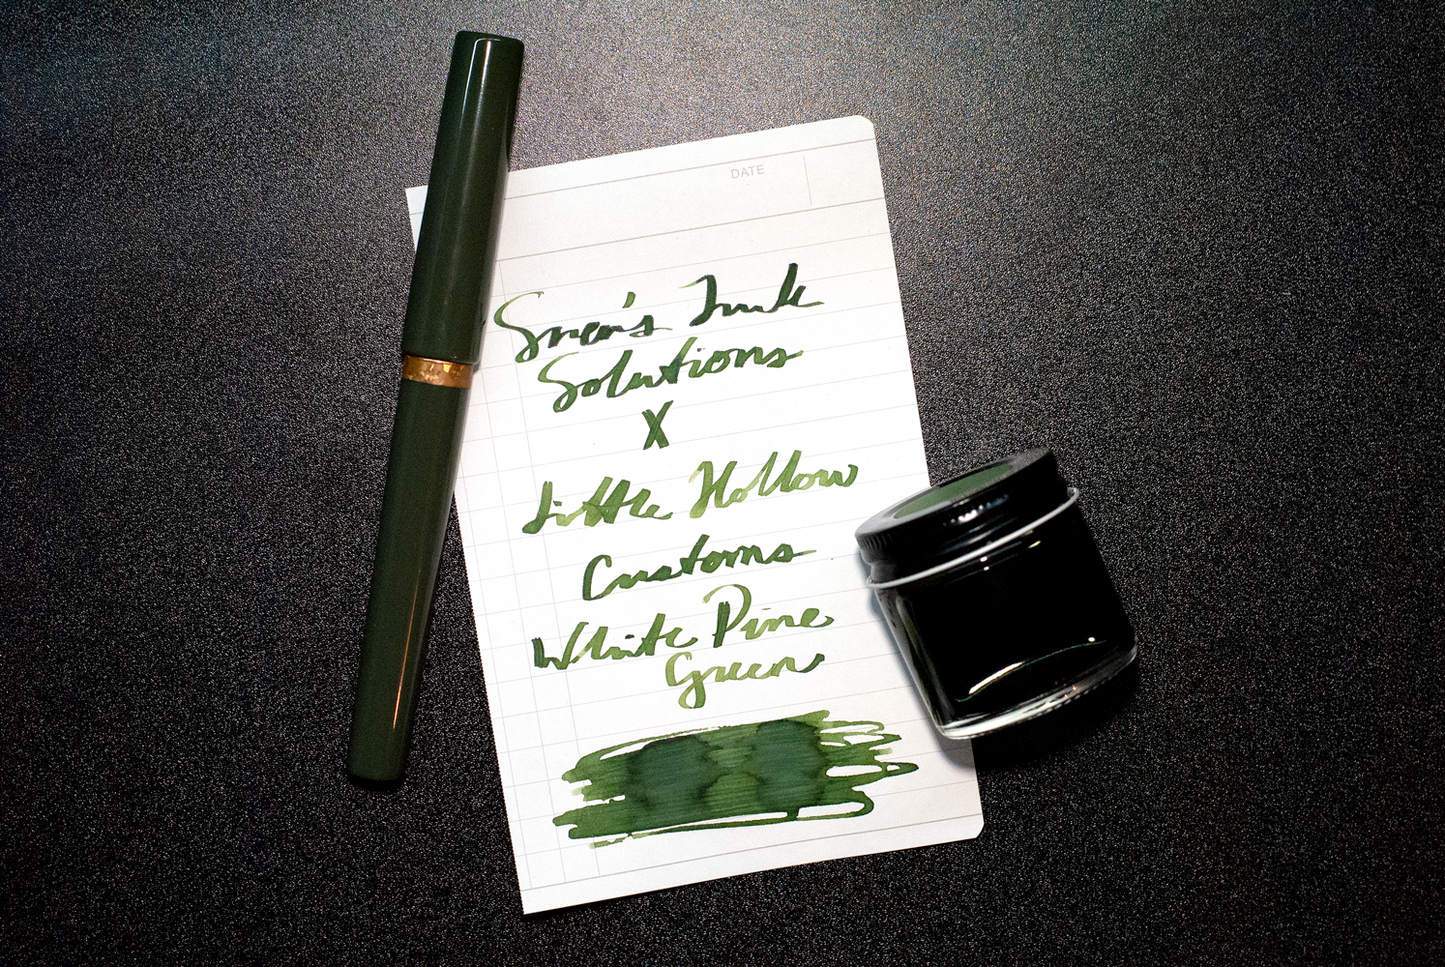 DATE
Solutions
X
Little Hollow
Customs
White Pine
Green